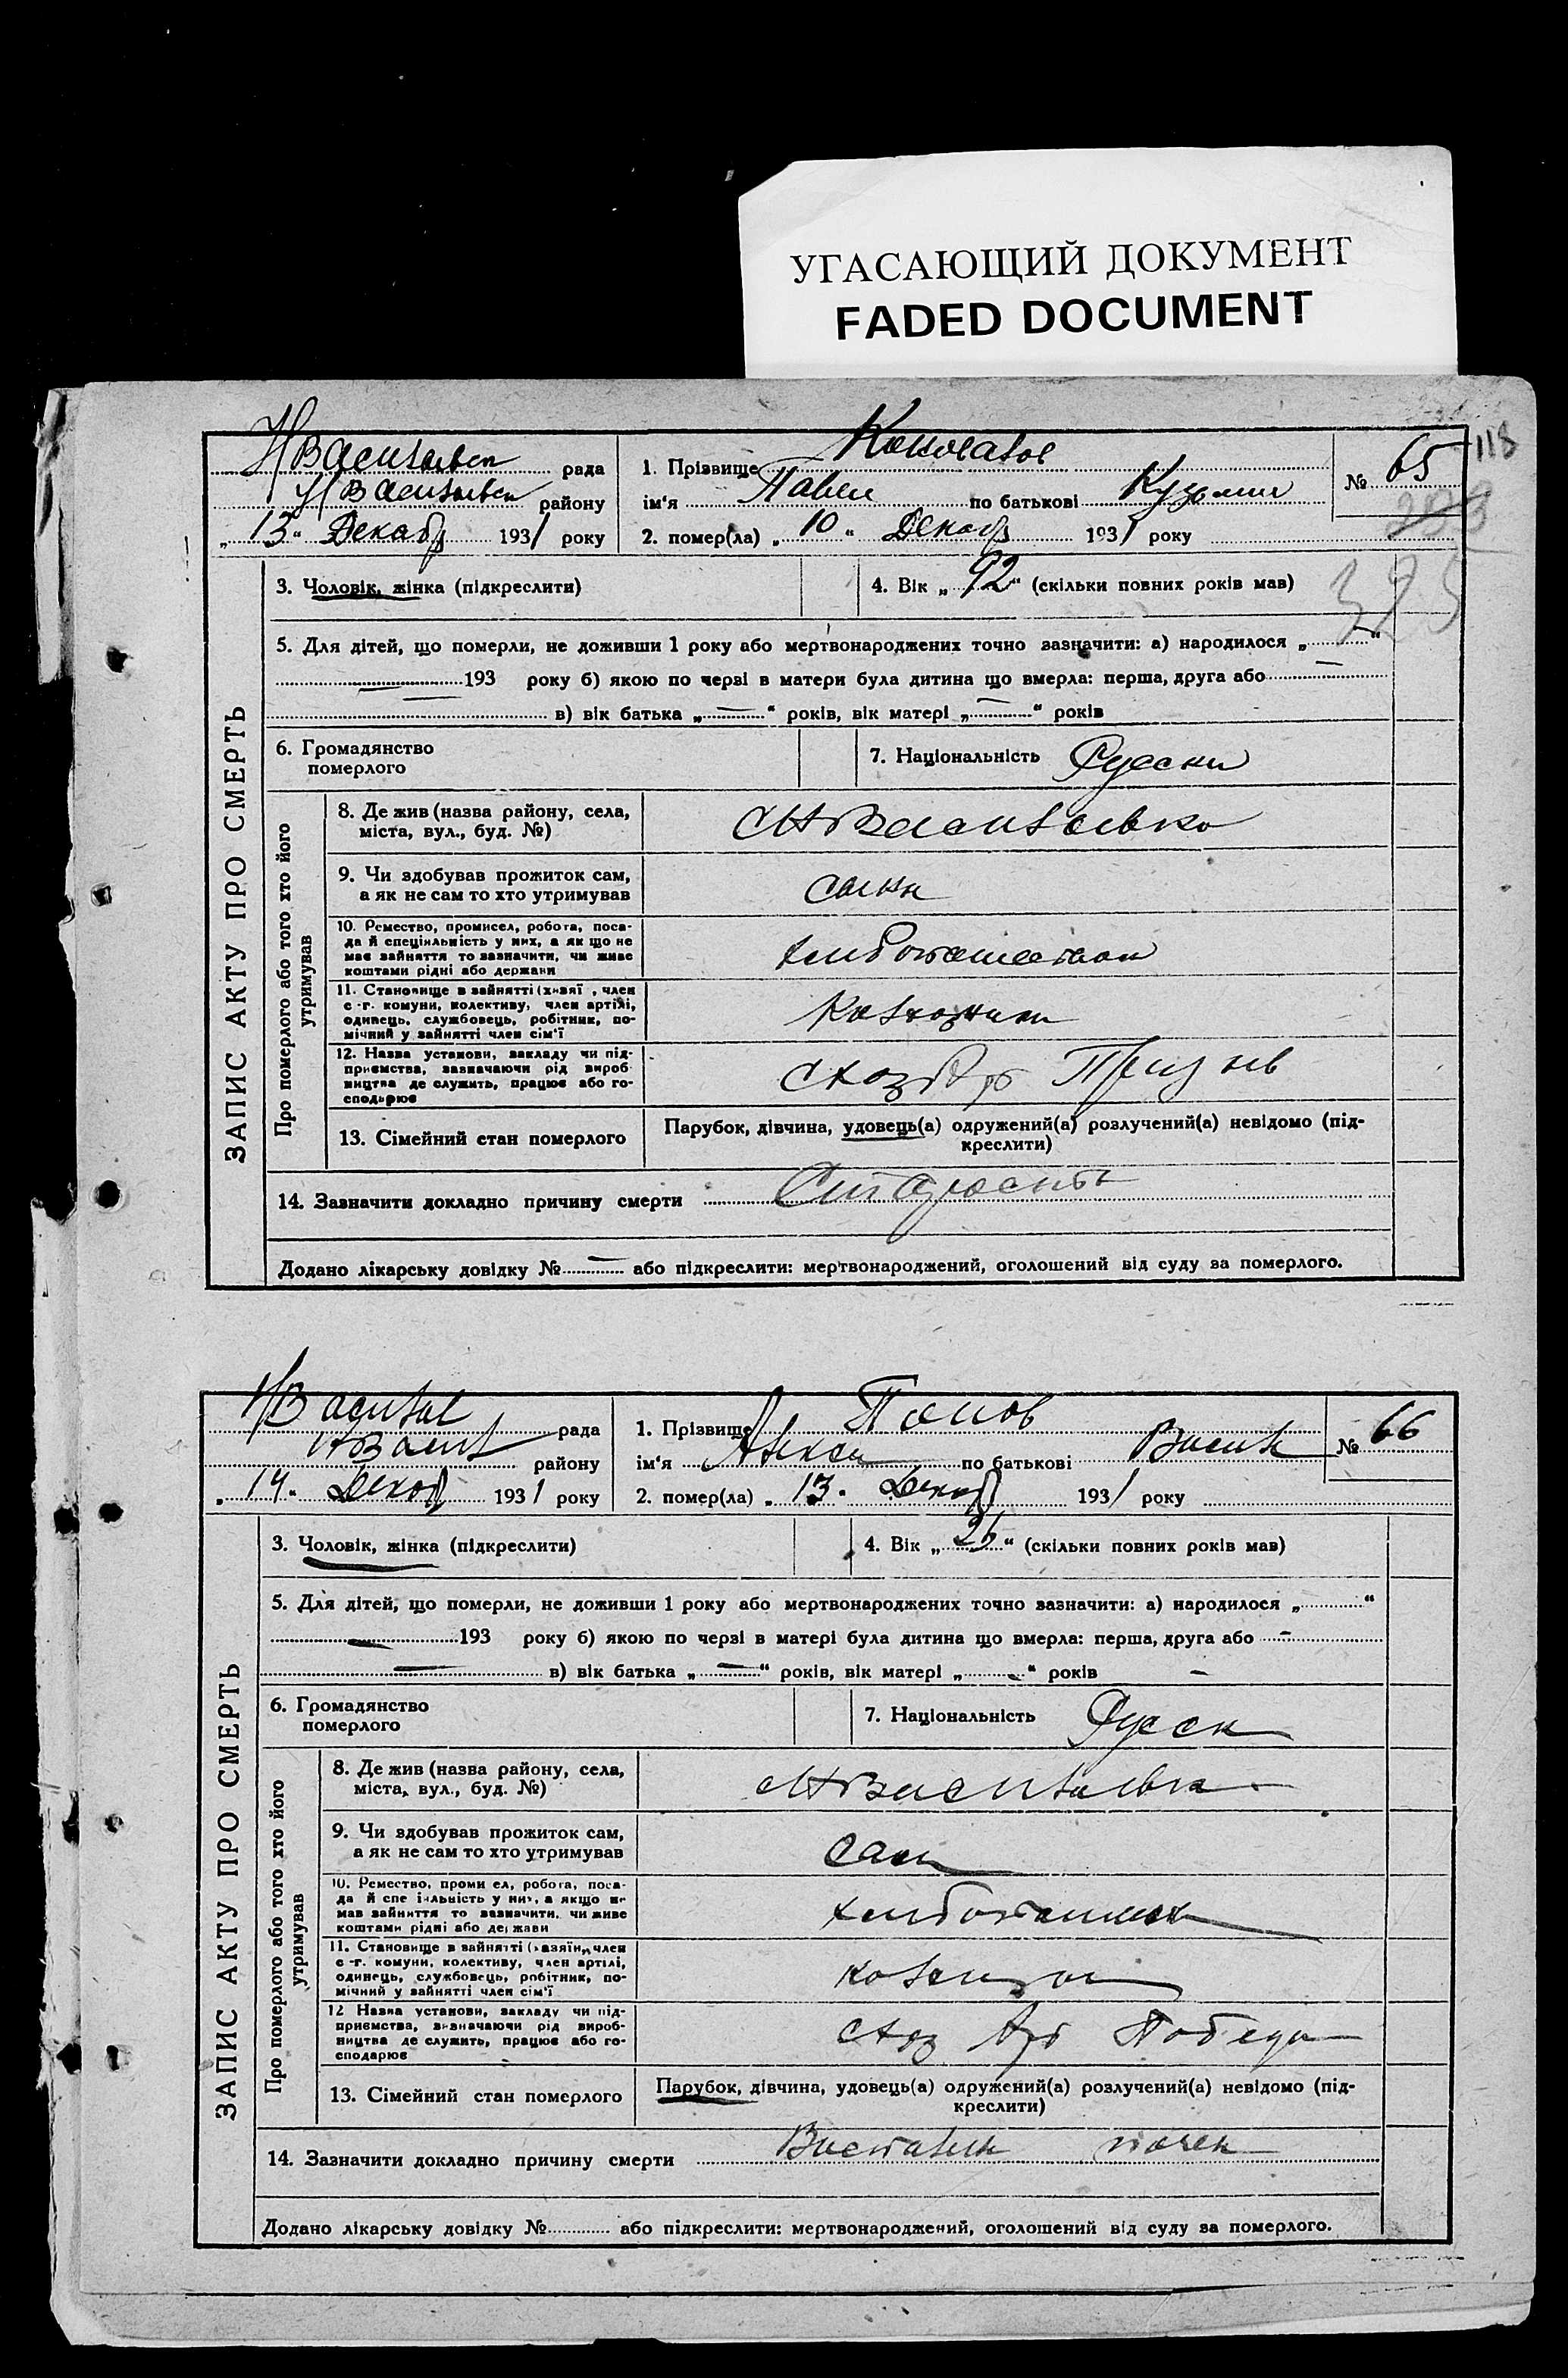 УГАСАЮЩИЙ ДОКУМЕНТ
FADED DOCUMENT
118
ЗАПИС АКТУ ПРО СМЕРТЬ
рада
району
„13“ Декабр 1931 року
1. Прізвище
ім‘я Павел по батькові Кузьмич
2. помер(ла) „10“ Декабр 1931 року
№ 65
203
325
3. Чоловік, жінка (підкреслити)
4. Вік „92“ (скільки повних років мав)
5. Для дітей, що померли, не доживши 1 року або мертвонароджених точно зазначити: а) народилося „ “
193 року б) якою по черзі в матери була дитина що вмерла: перша, друга або
в) вік батька „—“ років, вік матері „—“ років
6. Громадянство
померлого
7. Національність Русски
Про померлого або того хто його
утримував
8. Де жив (назва району, села,
міста, вул., буд. №)
9. Чи здобував прожиток сам,
а як не сам то хто утримував
10. Ремество, промисел, робота, поса-
да й спеціяльність у них, а як що не
має зайняття то зазначити, чи живе
коштами рідні або держави
11. Становище в зайнятті (хазяї , член
с-г. комуни, колективу, член артілі,
одинець, службовець, робітник, по-
мічний у зайнятті член сім‘ї
12. Назва установи, закладу чи під-
приємства, зазначаючи рід вироб
ництва де служить, працює або го-
сподарює
13. Сімейний стан померлого
Парубок, дівчина, удовець(а) одружений(а) розлучений(а) невідомо (під-
креслити)
14. Зазначити докладно причину смерти Старость
Додано лікарську довідку №— або підкреслити: мертвонароджений, оголошений від суду за померлого.
ЗАПИС АКТУ ПРО СМЕРТЬ
рада
району
„14“ Декаб 1931 року
1. Прізвище Попов
ім‘я Алексе по батькові Васил
2. помер(ла) „13“ Декаб 1931 року
№ 66
3. Чоловік, жінка (підкреслити)
4. Вік „26“ (скільки повних років мав)
5. Для дітей, що померли, не доживши 1 року або мертвонароджених точно зазначити: а) народилося „ “
193 року б) якою по черзі в матері була дитина що вмерла: перша, друга або —
в) вік батька „—“ років, вік матері „—“ років —
6. Громадянство
померлого
7. Національність Русск
Про померлого або того хто його
утримував
8. Де жив (назва району, села,
міста, вул., буд. №)
9. Чи здобував прожиток сам,
а як не сам то хто утримував
Сам
10. Ремество, проми ел, робота, поса-
да й спе іяльність у них, а якщо не
має зайняття то зазначити, чи живе
коштами рідні або держави
11. Становище в зайнятті (хазяїн, член
с-г. комуни, колективу, член артілі,
одинець, службовець, робітник, по-
мічний у зайнятті член сім‘ї
12 Назва установи, закладу чи під-
приємства, визначаючи рід вироб-
ництва де служить, працює або го-
сподарює
Схоз Арт Победа
13. Сімейний стан померлого
Парубок, дівчина, удовець(а) одружений(а) розлучений(а) невідомо (під-
креслити)
14. Зазначити докладно причину смерти почек
Додано лікарську довідку № або підкреслити: мертвонароджений, оголошений від суду за померлого.